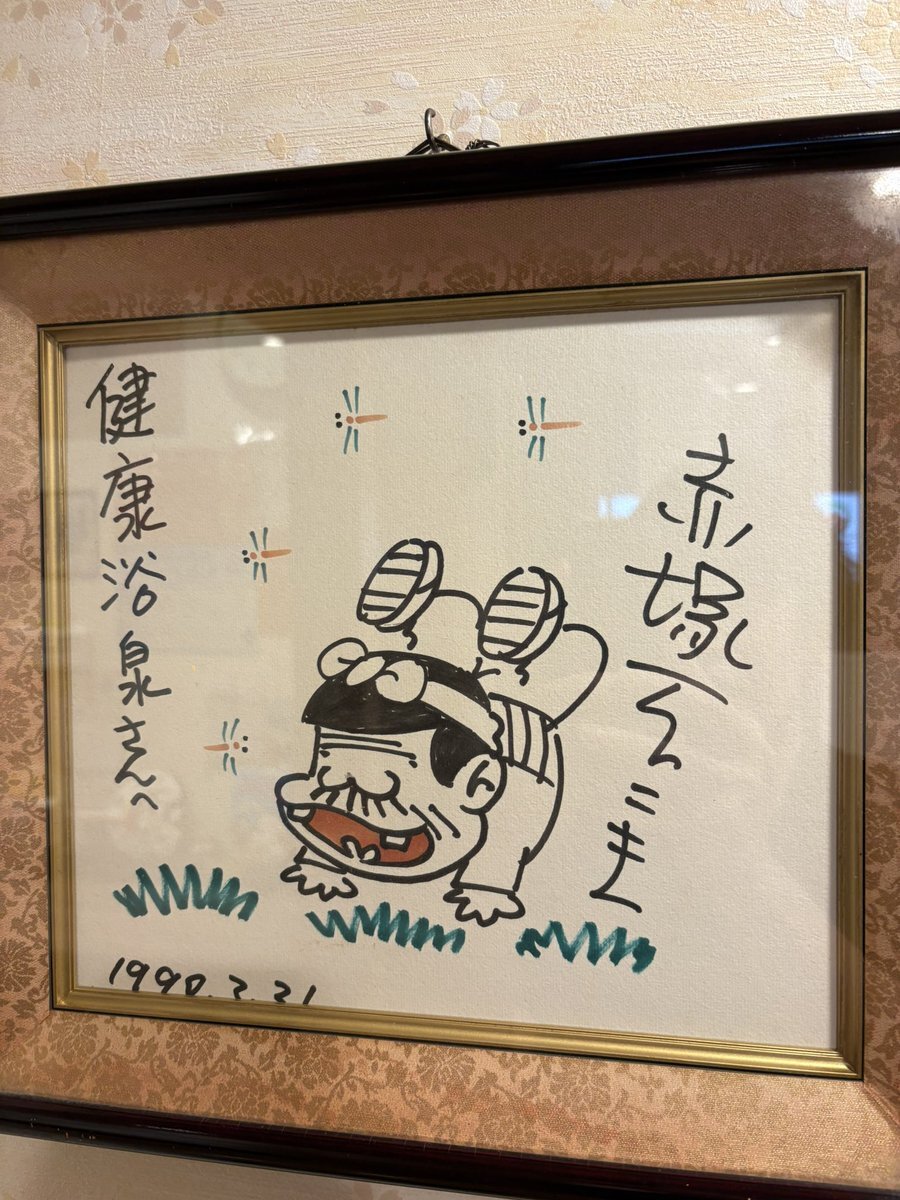 赤塚不二夫
健康浴泉さんへ
1990.